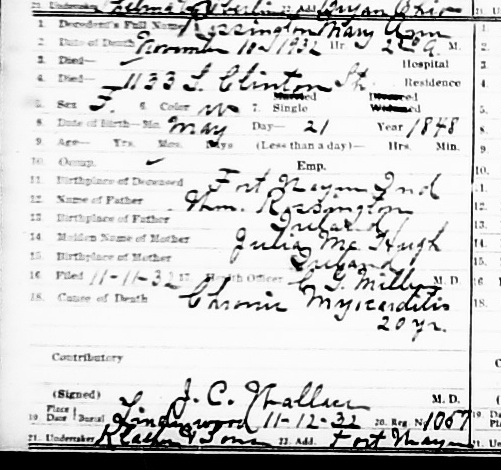 21. Undertaker Thelma 22. Add. Bryan Ohio
1. Decedent's Full Name Rossington Mary Ann
2. Date of Death November 10-1932 Hr. 2 A. M.
3. Died— Hospital
4. Died— 1133 S. Clinton St. Residence
Married Divorced
5. Sex F. 6. Color W 7. Single Widowed
8. Date of Birth—Mo. May Day— 21 Year 1848
9. Age— Yrs. Mos. Days (Less than a day)— Hrs. Min.
10. Occup. Emp.
11. Birthplace of Deceased Fort Wayne Ind
12. Name of Father Wm. Rossington
13. Birthplace of Father Ireland
14. Maiden Name of Mother Julia McHugh
15. Birthplace of Mother Ireland
16. Filed 11-11-32 17. Health Officer M. D.
18. Cause of Death Chronic Myocarditis
20 yr.
Contributory
(Signed) J. C. Wallace M. D.
19. Place Date Burial Lindenwood 11-12-32 20. Reg. No. 1067
21. Undertaker & Sons 22. Add. Fort Wayne